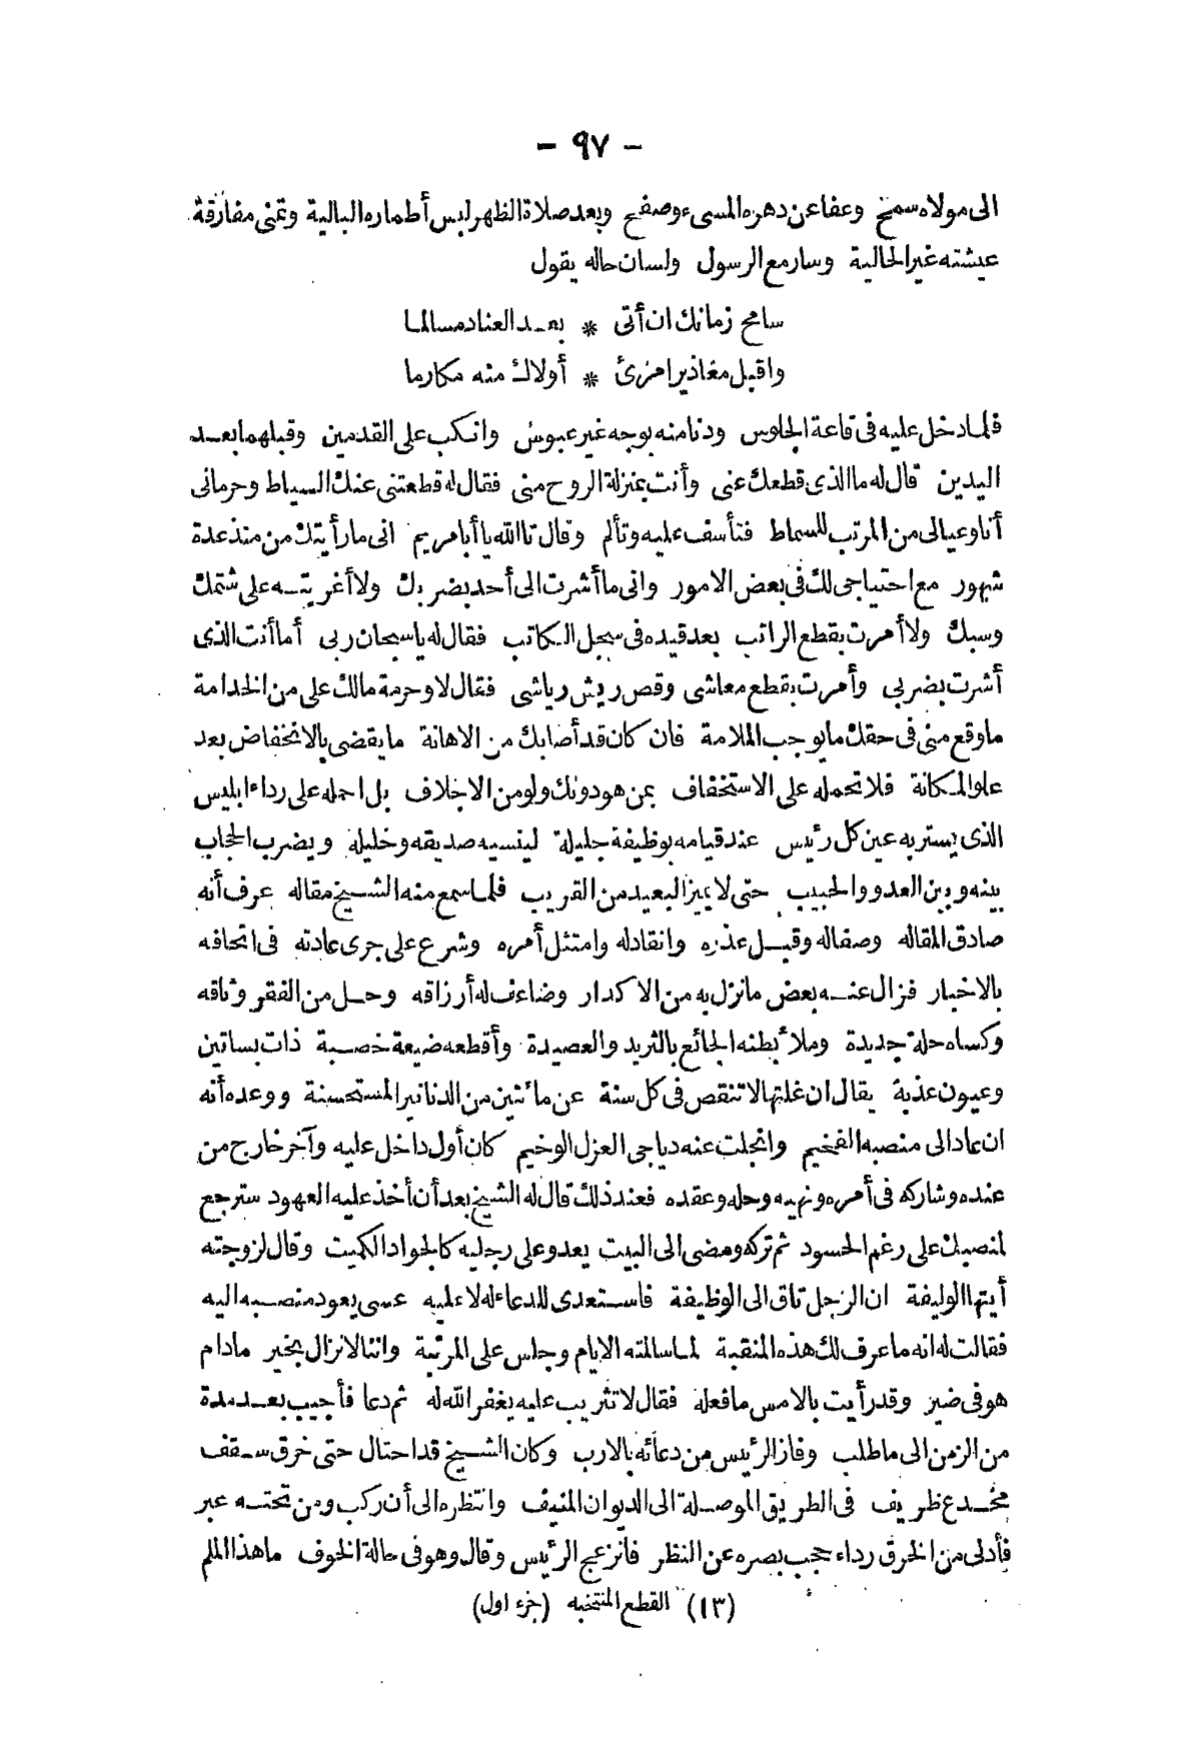 - ٩٧ -
الى مولاه سمح وعفا عن دهره المسىء وصفح وبعد صلاة الظهر لبس أطماره البالية وتمنى مفارقة
عيشته غير الحالية وسار مع الرسول ولسان حاله يقول
سامح زمانك ان أتى * بعد العناد مسالما
واقبل معاذير امرئ * أولاك منه مكارما
فلما دخل عليه فى قاعة الجلوس ودنا منه بوجه غير عبوس وانكب على القدمين وقبلهما بعد
اليدين قال له ما الذى قطعك عنى وأنت بمنزلة الروح منى فقال له قطعتنى عنك السياط وحرمانى
أنا وعيالى من المرتب للسماط فتأسف عليه وتألم وقال تالله يا أبا مريم انى ما رأيتك من منذ عدة
شهور مع احتياجى لك فى بعض الامور وانى ما أشرت الى أحد بضربك ولا أغريته على شتمك
وسبك ولا أمرت بقطع الراتب بعد قيده فى سجل الكاتب فقال له يا سبحان ربى أما أنت الذى
أشرت بضربى وأمرت بقطع معاشى وقص ريش رياشى فقال لا وحرمة مالك على من الخدامة
ما وقع منى فى حقك ما يوجب الملامة فان كان قد أصابك من الاهانة ما يقضى بالانخفاض بعد
علو المكانة فلا تحمله على الاستخفاف بمن هو دونك ولو من الاخلاف بل احمله على رداء ابليس
الذى يستر به عين كل رئيس عند قيامه بوظيفة جليلة لينسيه صديقه وخليله ويضرب الحجاب
بينه وبين العدو والحبيب حتى لا يميز البعيد من القريب فلما سمع منه الشيخ مقاله عرف أنه
صادق المقاله وصفا له وقبل عذره وانقاد له وامتثل أمره وشرع على جرى عادته فى اتحافه
بالاخبار فزال عنه بعض ما نزل به من الاكدار وضاعف له أرزاقه وحل من الفقر وثاقه
وكساه حلة جديدة وملأ بطنه الجائع بالثريد والعصيدة وأقطعه ضيعة خصبة ذات بساتين
وعيون عذبة يقال ان غلتها لا تنقص فى كل سنة عن مائتين من الدنانير المستحسنة ووعده أنه
ان عاد الى منصبه الفخيم وانجلت عنه دياجى العزل الوخيم كان أول داخل عليه وآخر خارج من
عنده وشاركه فى أمره ونهيه وحله وعقده فعند ذلك قال له الشيخ بعد أن أخذ عليه العهود سترجع
لمنصبك على رغم الحسود ثم تركه ومضى الى البيت يعدو على رجليه كالجواد الكميت وقال لزوجته
أيتها الوليفة ان الرجل تاق الى الوظيفة فاستعدى للدعاء له لا عليه عسى يعود منصبه اليه
فقالت له انه ما عرف لك هذه المنقبة لما سالمته الايام وجلس على المرتبة واننا لا نزال بخير مادام
هو فى ضير وقد رأيت بالامس ما فعله فقال لا تثريب عليه يغفر الله له ثم دعا فأجيب بعد مدة
من الزمن الى ما طلب وفاز الرئيس من دعائه بالارب وكان الشيخ قد احتال حتى خرق سقف
مخدع ظريف فى الطريق الموصلة الى الديوان المنيف وانتظره الى أن ركب ومن تحته عبر
فأدلى من الخرق رداء حجب بصره عن النظر فانزعج الرئيس وقال وهو فى حالة الخوف ما هذا الملم
(١٣) القطع المنتخبه (جزء اول)